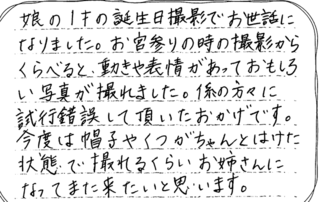 娘の1才の誕生日撮影でお世話に
なりました。お宮参りの時の撮影から
くらべると、動きや表情があっておもしろ
い写真が撮れました。係の方々に
試行錯誤して頂いたおかげです。
今度は帽子やくつがちゃんとはけた
状態で撮れるくらいお姉さんに
なってまた来たいと思います。